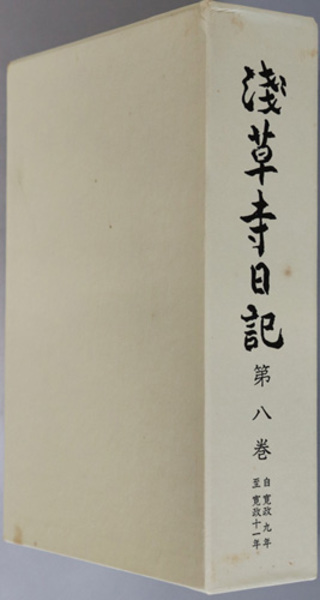 淺草寺日記
第八巻
自寛政九年
至寛政十一年